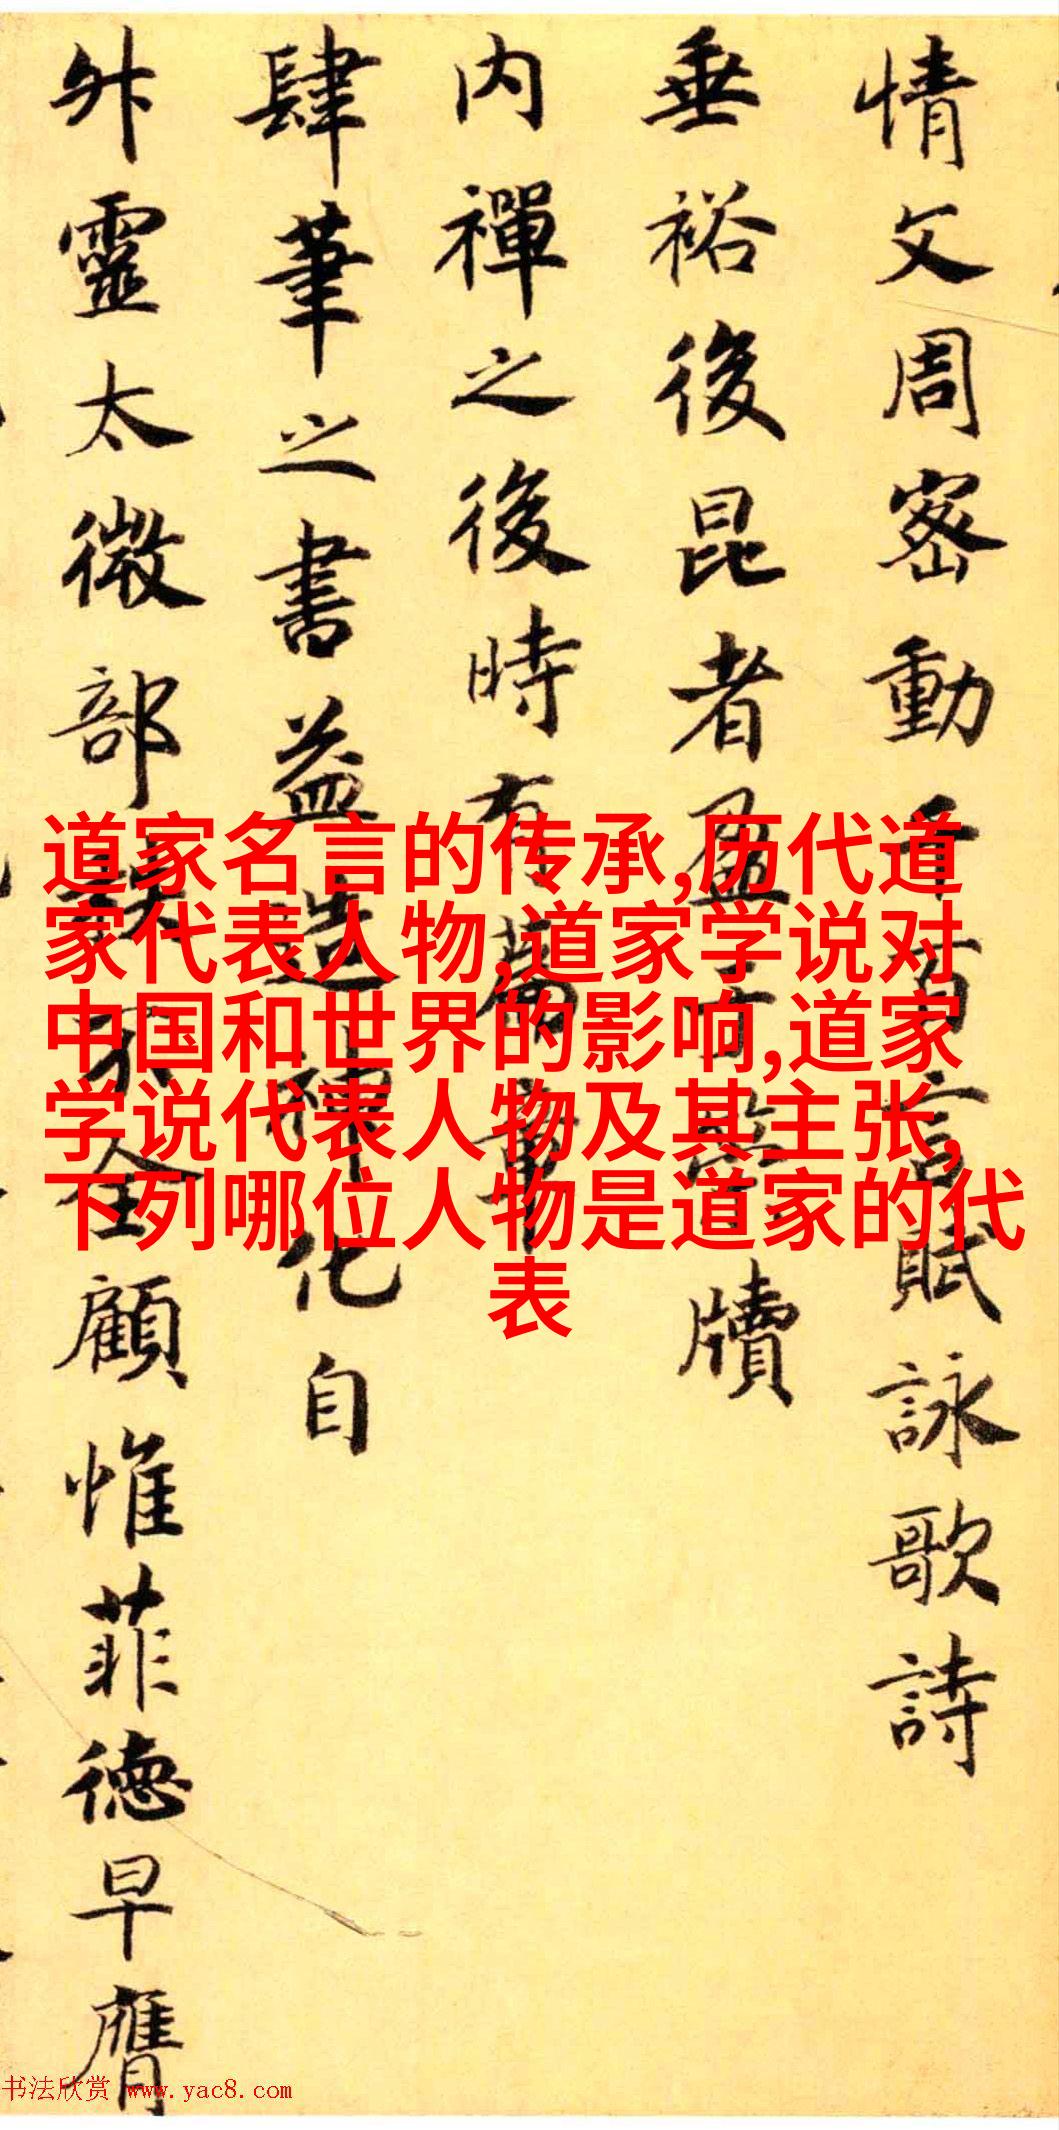 情文周密動千言賦詠歌詩
垂裕後昆者盈 牘
内禪之後時有
肆筆之書益造神化自
舛靈太微部 顧惟菲德早膺
道家名言的传承,历代道
家代表人物,道家学说对
中国和世界的影响,道家
学说代表人物及其主张,
下列哪位人物是道家的代
表
书法欣赏 www.yac8.com